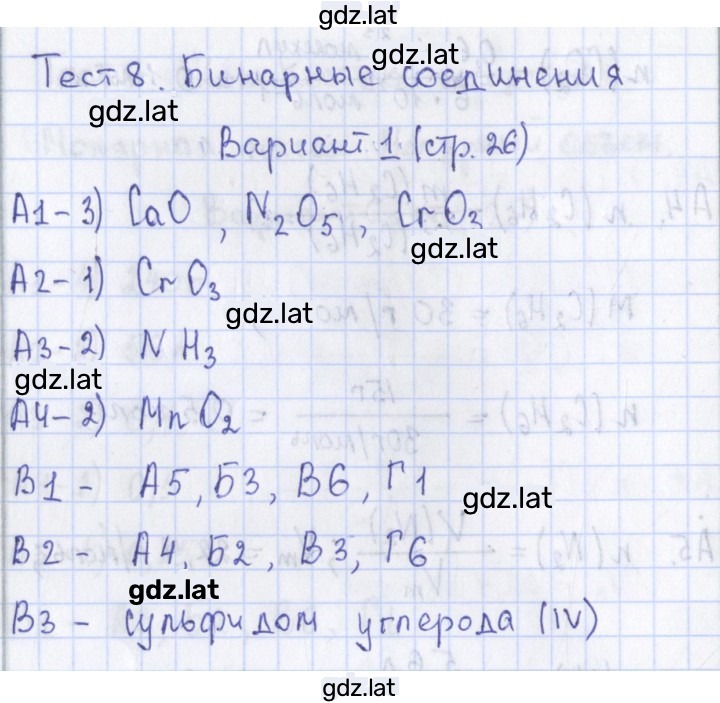 gdz.lat
Тест 8. Бинарные соединения
gdz.lat
gdz.lat
Вариант 1. (стр. 26)
А1 - 3) CaO, N₂O₅, CrO₃
gdz.lat
А2 - 1) CrO₃
gdz.lat
А3 - 2) NH₃
gdz.lat
А4 - 2) MnO₂
В1 - А5, Б3, В6, Г1
gdz.lat
В2 - А4, Б2, В3, Г6
gdz.lat
В3 - сульфидом углерода (IV)
gdz.lat